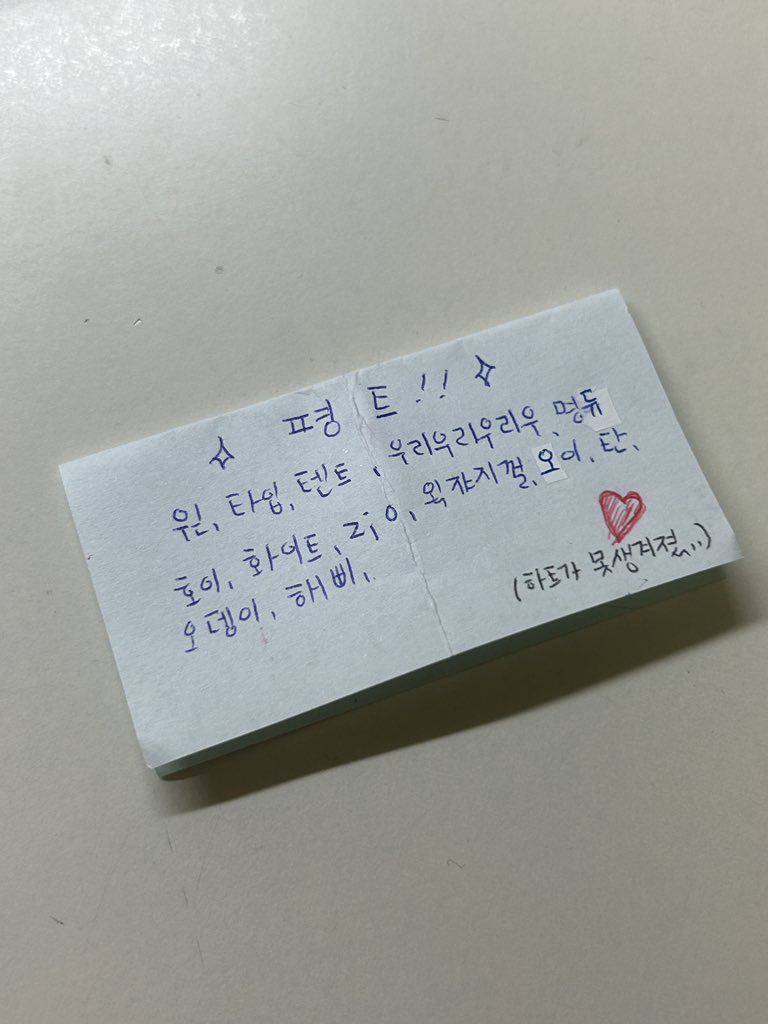 ✧ 평트!! ✧
원, 타입, 텐트, 우리우리우리우, 명듀
호이, 화이트, 리오, 왁쟈지껄, 오이, 탄,
오뎅이, 해삐,
(하트가 못생겨졌,,,)